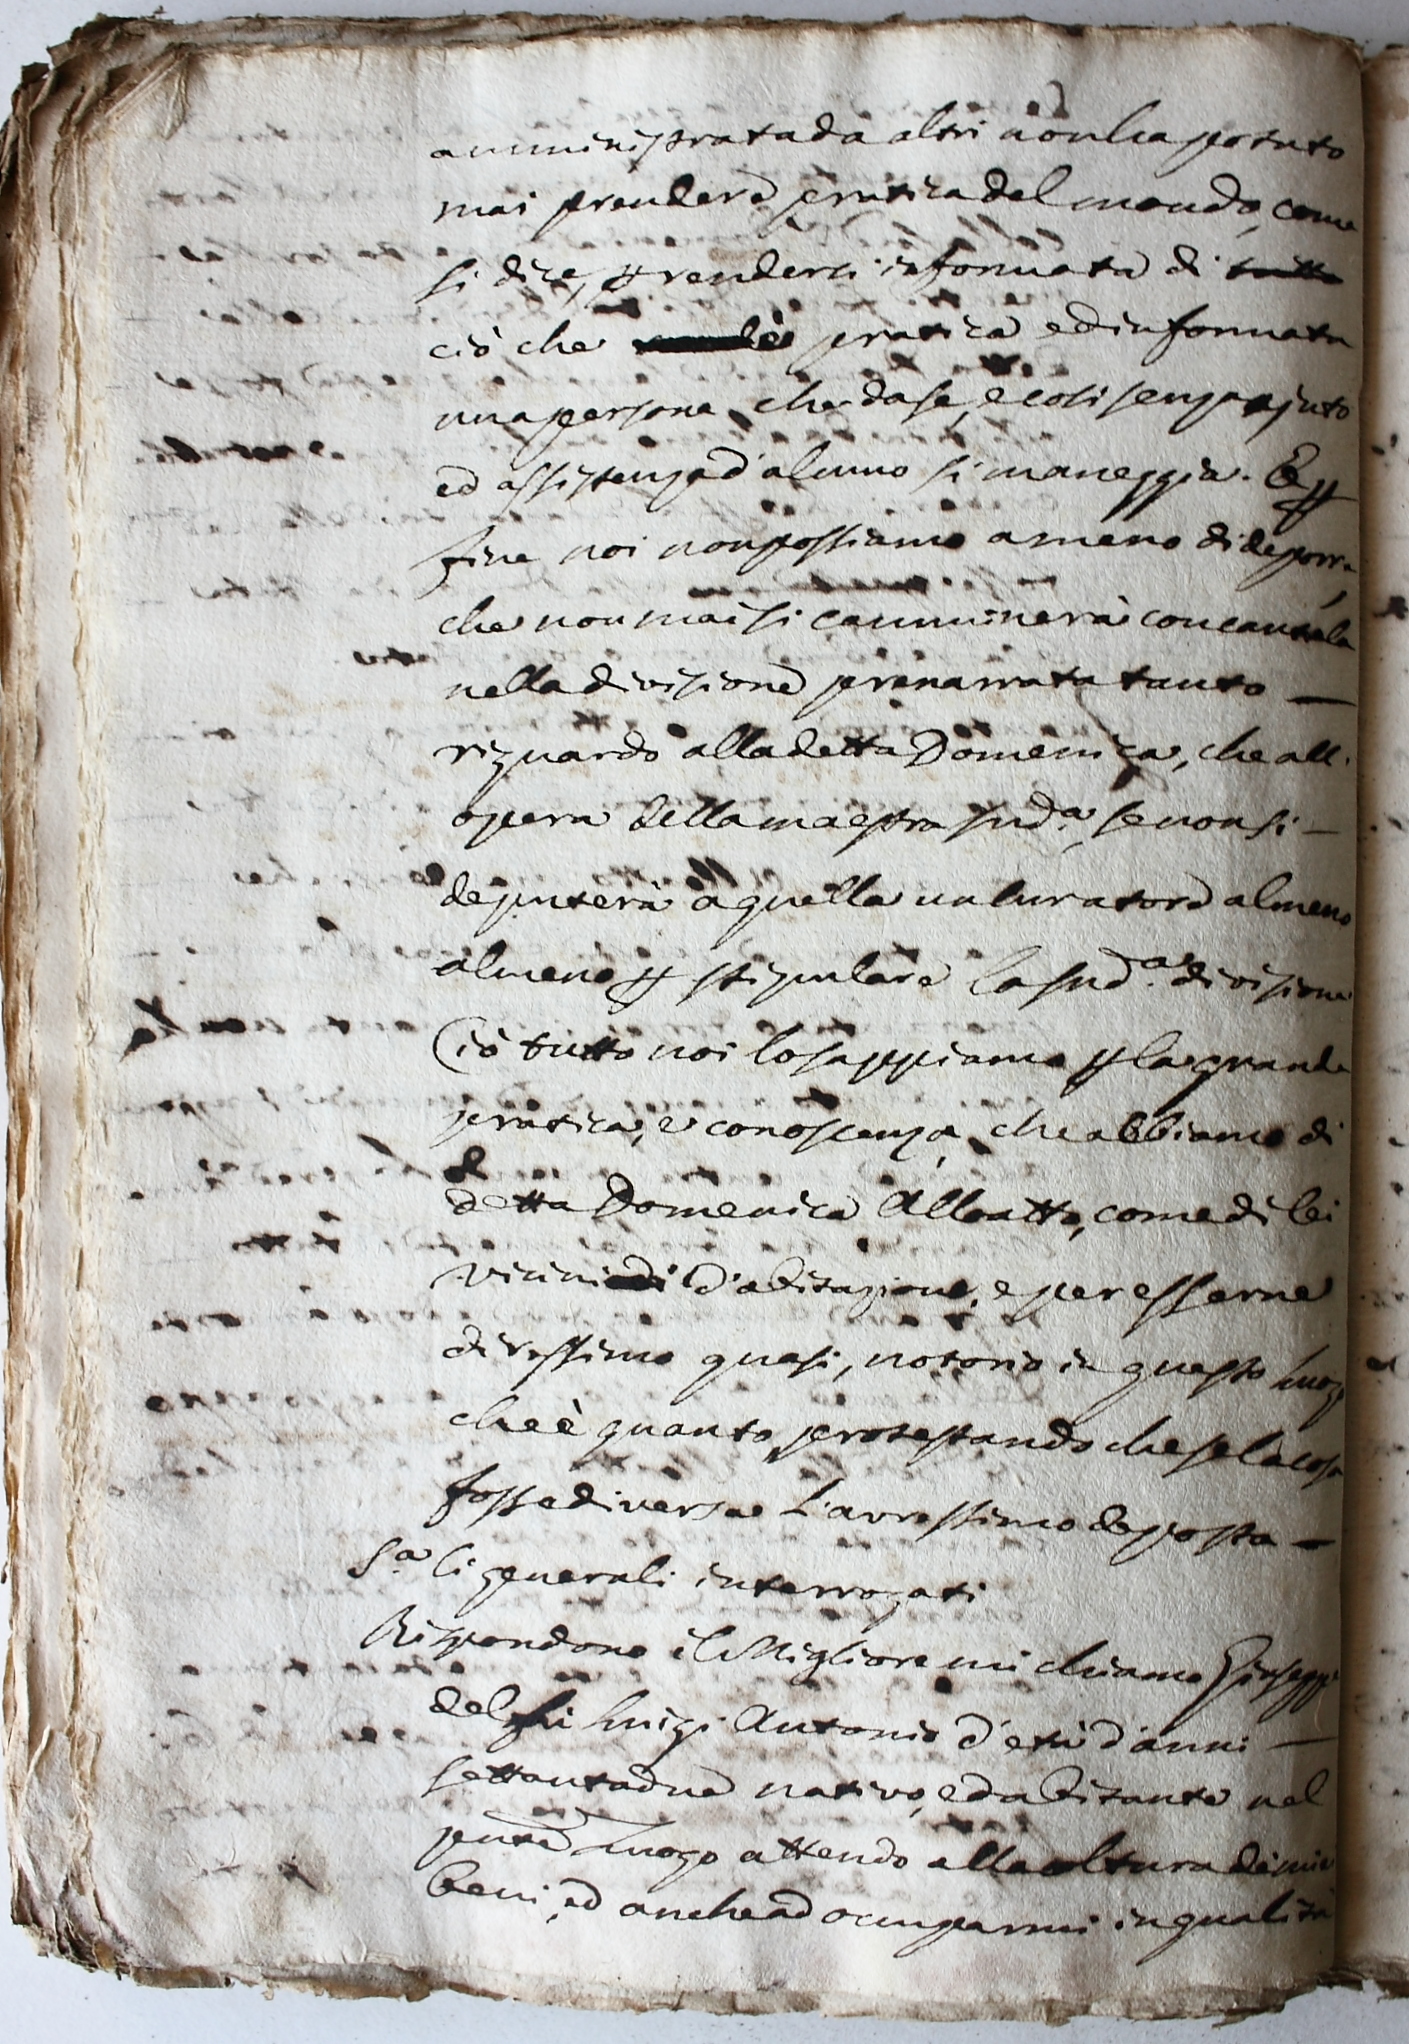 amministrata da altri non ha potuto
mai prendere pratica del mondo, come
si dice, p rendersi informata di tutto
ciò che è pratica ed informata
una persona che da se, e così senza ajuto
ed assistenza d'alcuno si maneggia. E p
fine noi non possiamo a meno di deporre
che non mai si camminerà con cautela
nella divisione prenarrata tanto —
riguardo alla detta Domenica, che all'
opera della maestra sud.a, se non si —
deputerà a quella un curatore almeno
almeno p stipulare la sud.a divisione
Ciò tutto noi lo sappiamo p la grande
pratica, e conoscenza, che abbiamo di
detta Domenica Alloatto, come di lei
vicini d'abitazione, e per esserne
ciò quasi, notorio in questo luogo
che è quanto, protestando che se la cosa
fosse diversa l'avressimo deposta —
S.a li generali interrogati
Rispondono il Migliore mi chiamo Giuseppe
del fu Luigi Antonio d'età d'anni —
settantadue nativo, ed abitante nel
pnte luogo attendo alla coltura de' miei
beni, ed anche ad occuparmi in qualità